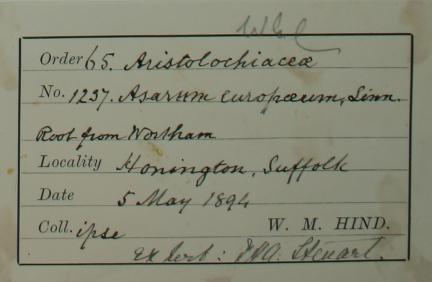 Order 65. Aristolochiaceæ
No. 1237. Asarum europæum, Linn.
Root from Wortham
Locality Honington, Suffolk
Date 5 May 1894
Coll. ipse W. M. HIND.
Ex herb: Stewart.